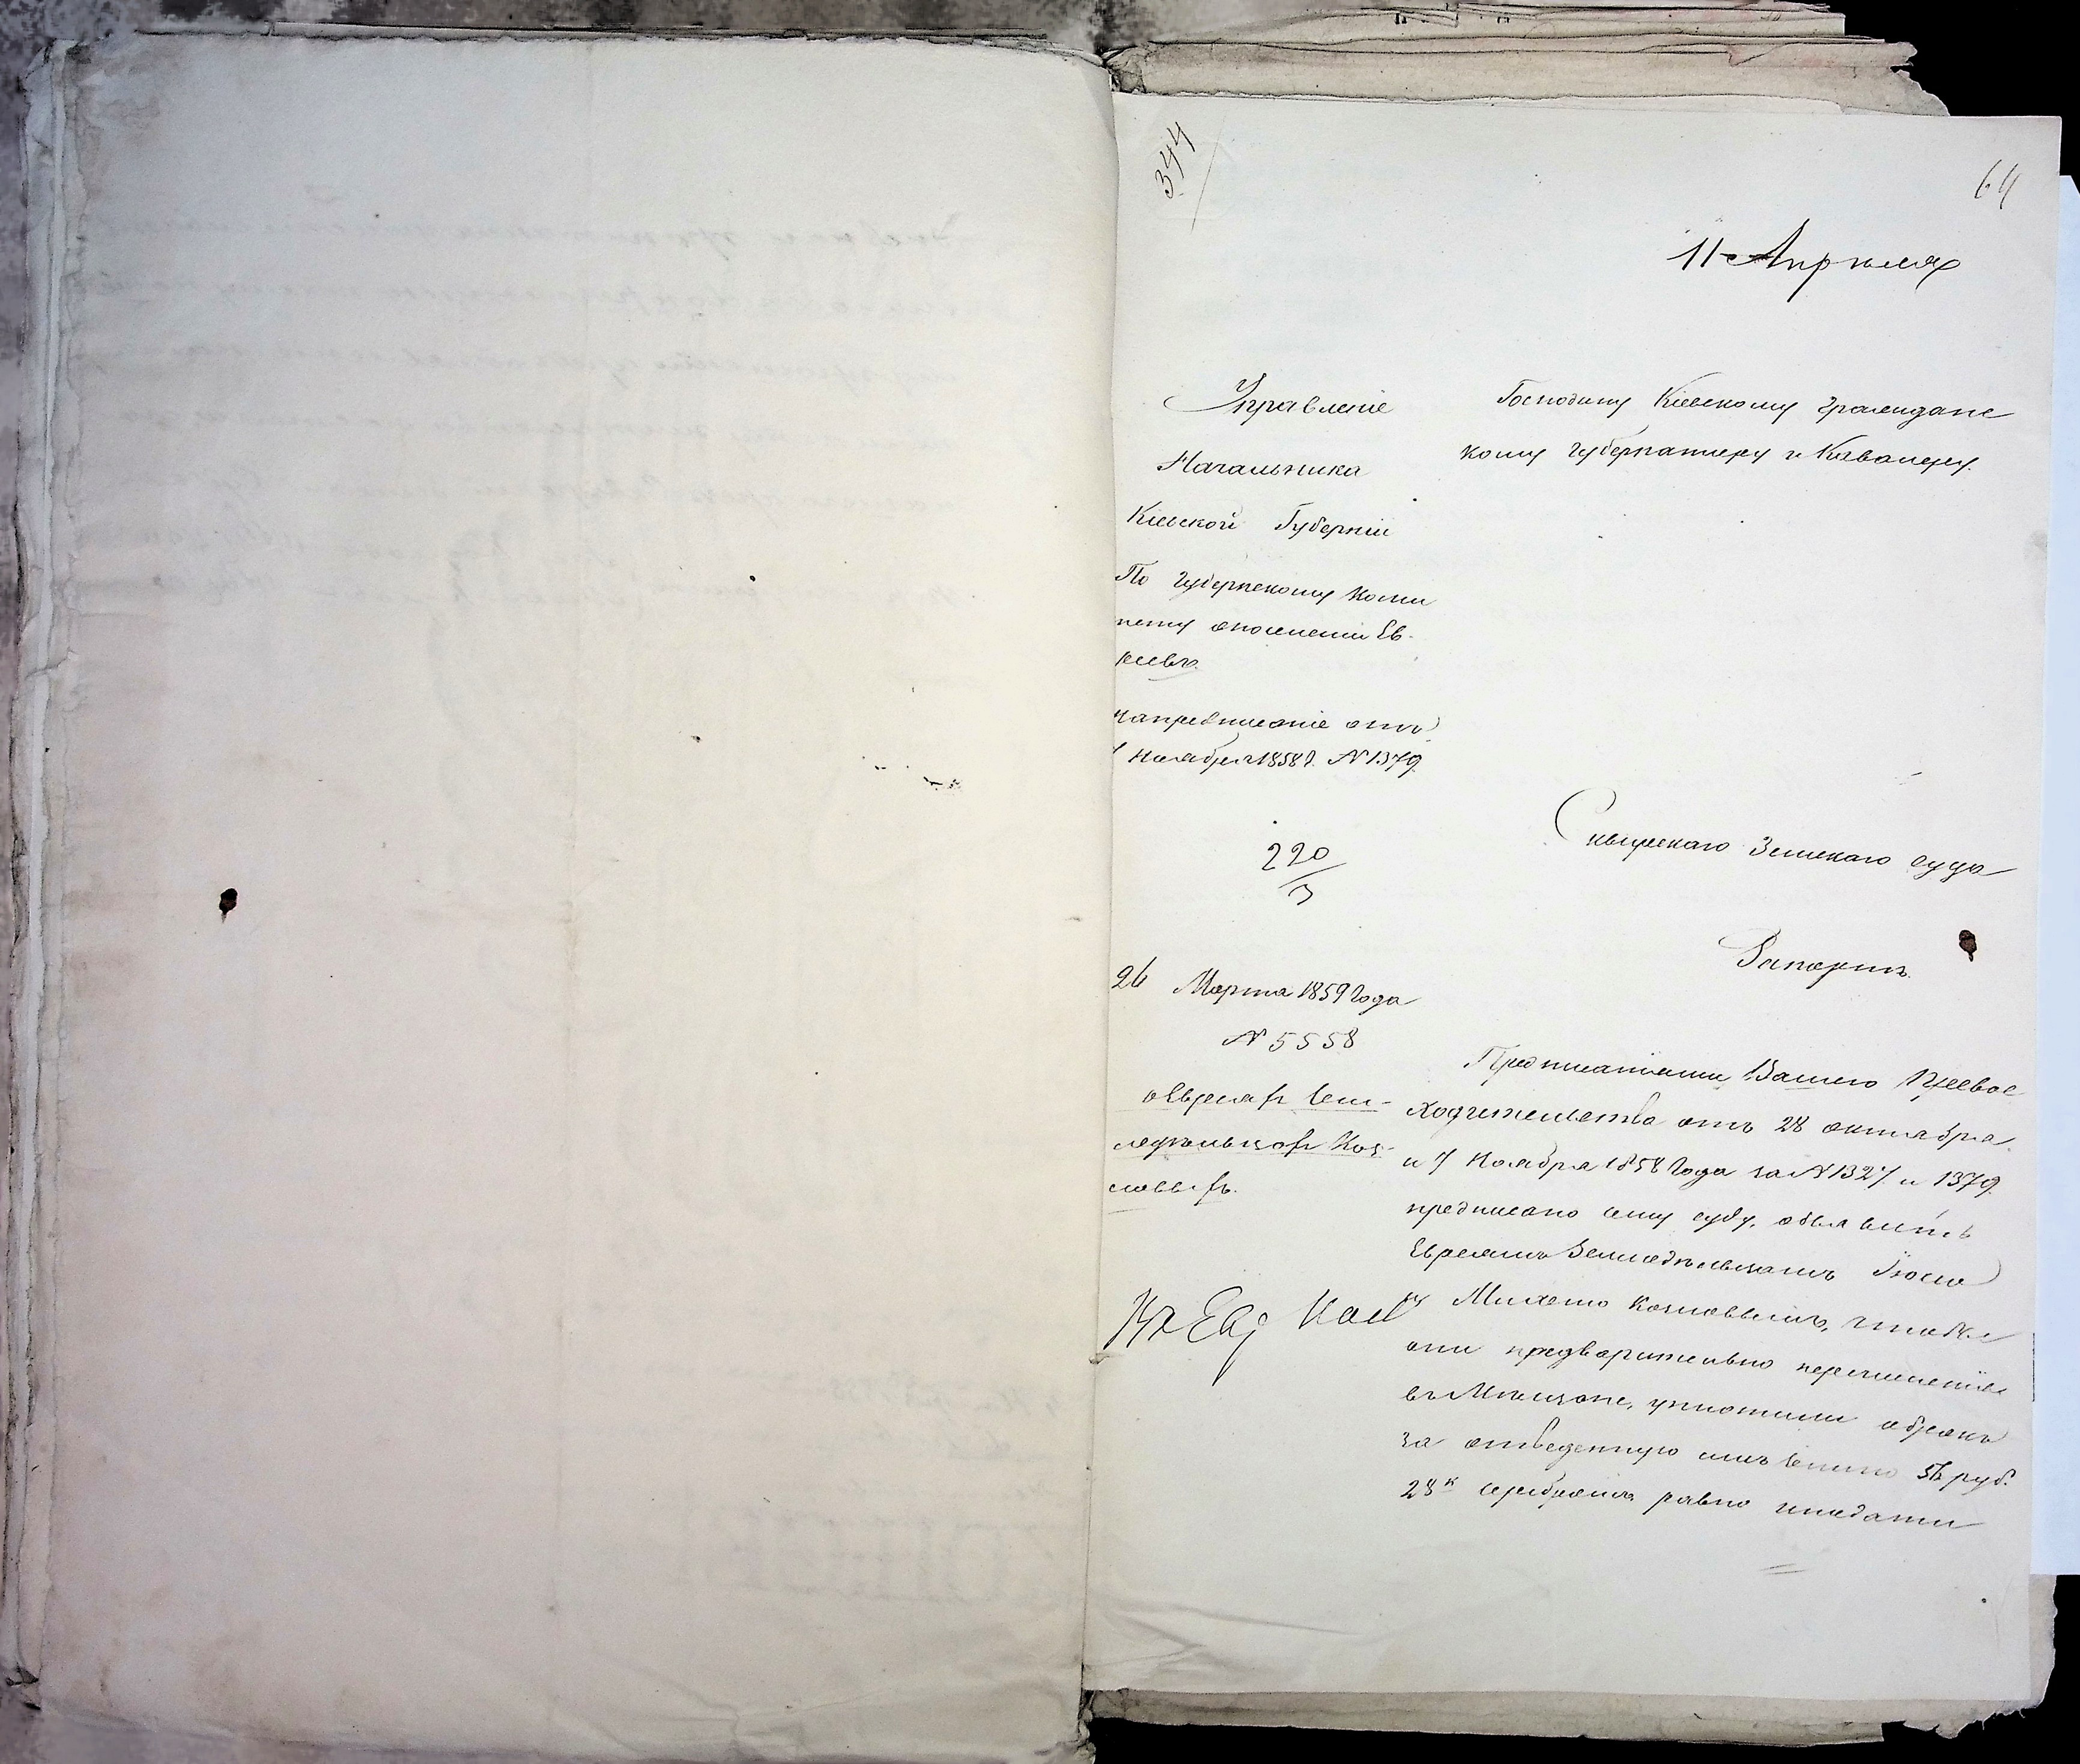 344
64
11 Апрѣля
Управленіе
Начальника
Кіевской Губерніи
По Губернскому Коми
тету о поселеніи Ев-
реевъ.
На предписаніе отъ
7 Ноября 1858 г. № 1379.
220/3
26 Марта 1859 года
№ 5558
о Евреяхъ Зем-
ледѣльцахъ Коз-
ловыхъ.
Господину Кіевскому Граждане
кому Губернатору и Кавалеру.
Сквирскаго Земскаго Суда
Рапортъ.
Предписаніями Вашего Превос
ходительства отъ 28 октября
и 7 Ноября 1858 года за № 1327 и 1379.
предписано сему суду, объявить
Евреямъ Земледѣльцамъ Іосю
и Козловымъ, чтобы
они предварительно перечисленія
въ Мѣщане, уплотили оброкъ
за отведенную имъ землю руб.
28 к серебромъ равно и подати